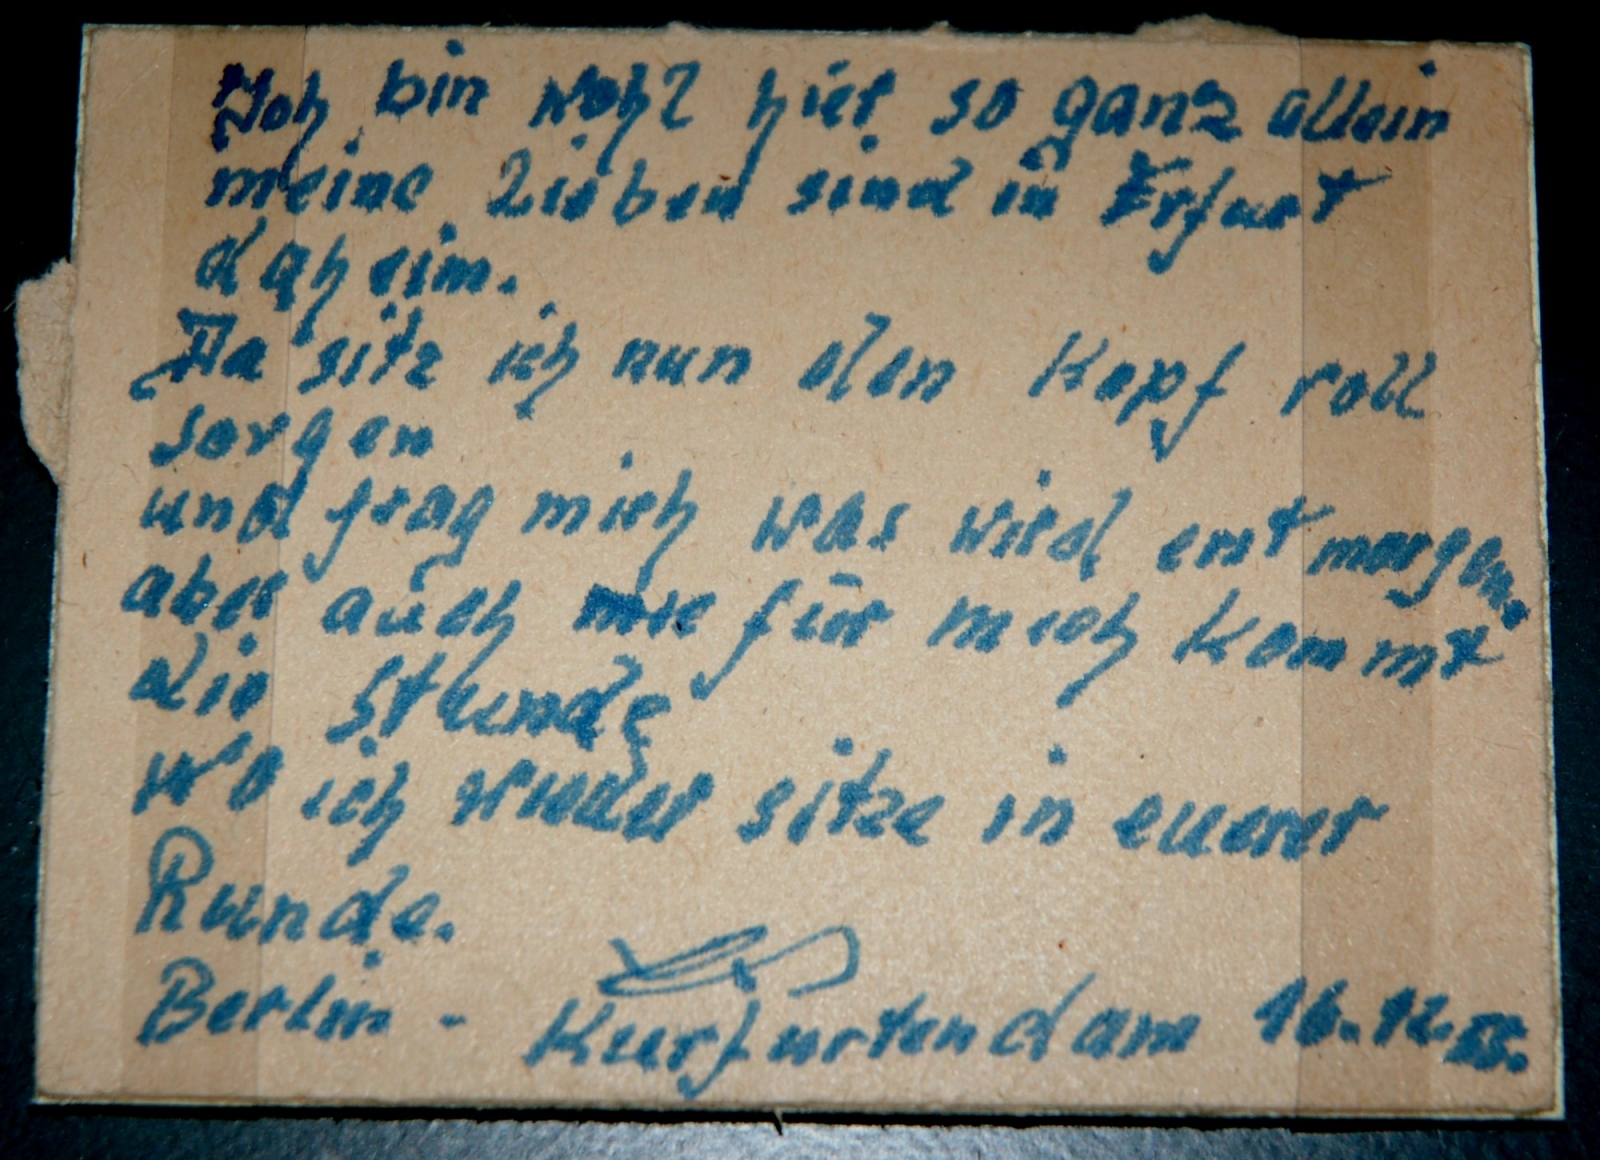 Ich bin wohl hier so ganz allein
meine Lieben sind in Erfurt
daheim.
Da sitz ich nun den Kopf voll
sorgen
und frag mich was wird erst morgen.
aber auch für mich kommt
die Stunde
wo ich wieder sitze in euerer
Runde.
Berlin - Kurfurtendam 16.12.